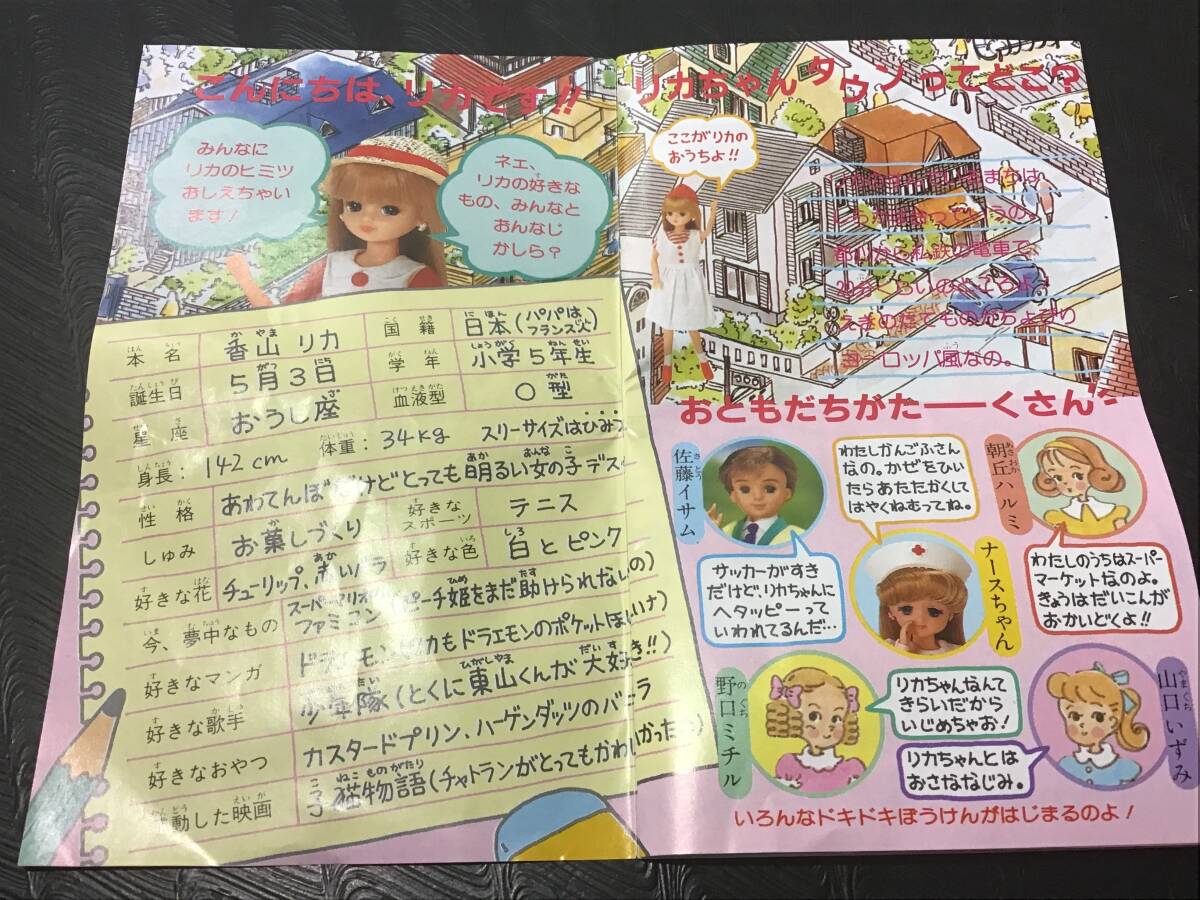 こんにちは、リカです!!
みんなに
リカのヒミツ
おしえちゃい
ます!
ネエ、
リカの好きな
もの、みんなと
おんなじ
かしら?
本名 香山 リカ 国籍 日本(パパは、フランス人)
誕生日 5月3日 学年 小学5年生
星座 おうし座 血液型 O型
身長: 142cm 体重: 34kg スリーサイズはひみつ
性格 あわてんぼ だけどとっても明るい女の子デス
しゅみ お菓しづくり 好きなスポーツ テニス
好きな花 チューリップ、赤いバラ 好きな色 白とピンク
今、夢中なもの スーパーマリオの ファミコン (ピーチ姫をまだ助けられないの)
好きなマンガ ドラえもん リカもドラエモンのポケットほしいナ)
好きな歌手 少年隊(とくに東山くんが大好き!!)
好きなおやつ カスタードプリン、ハーゲンダッツのバニラ
動した映画 子猫物語(チャトランがとってもかわいかった
リカちゃんタウンってどこ?
ここがリカの
おうちよ!!
都心から私鉄の電車で、
えきの建てものがちょっぴり
ヨーロッパ風なの。
おともだちがたーーくさん
佐藤イサム
サッカーがすき
だけど、リカちゃんに
ヘタッピーって
いわれてるんだ…
わたしかんごふさん
なの。かぜをひい
たらあたたかくして
はやくねむってね。
ナースちゃん
朝丘ハルミ
わたしのうちはスーパー
マーケットなのよ。
きょうはだいこんが
おかいどくよ!!
野口ミチル
リカちゃんなんて
きらいだから
いじめちゃお!
リカちゃんとは
おさななじみ。
山口いずみ
いろんなドキドキぼうけんがはじまるのよ!